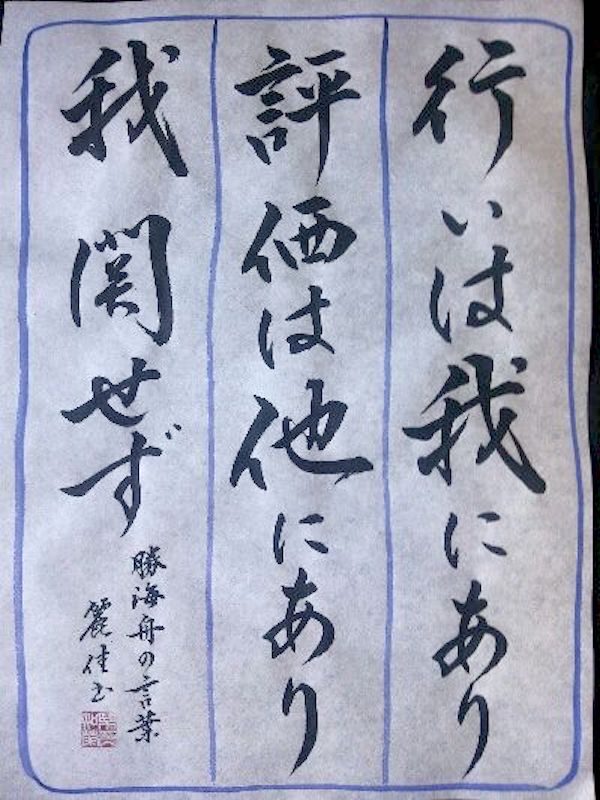 行いは我にあり
評価は他にあり
我関せず
勝海舟の言葉
麗佳书